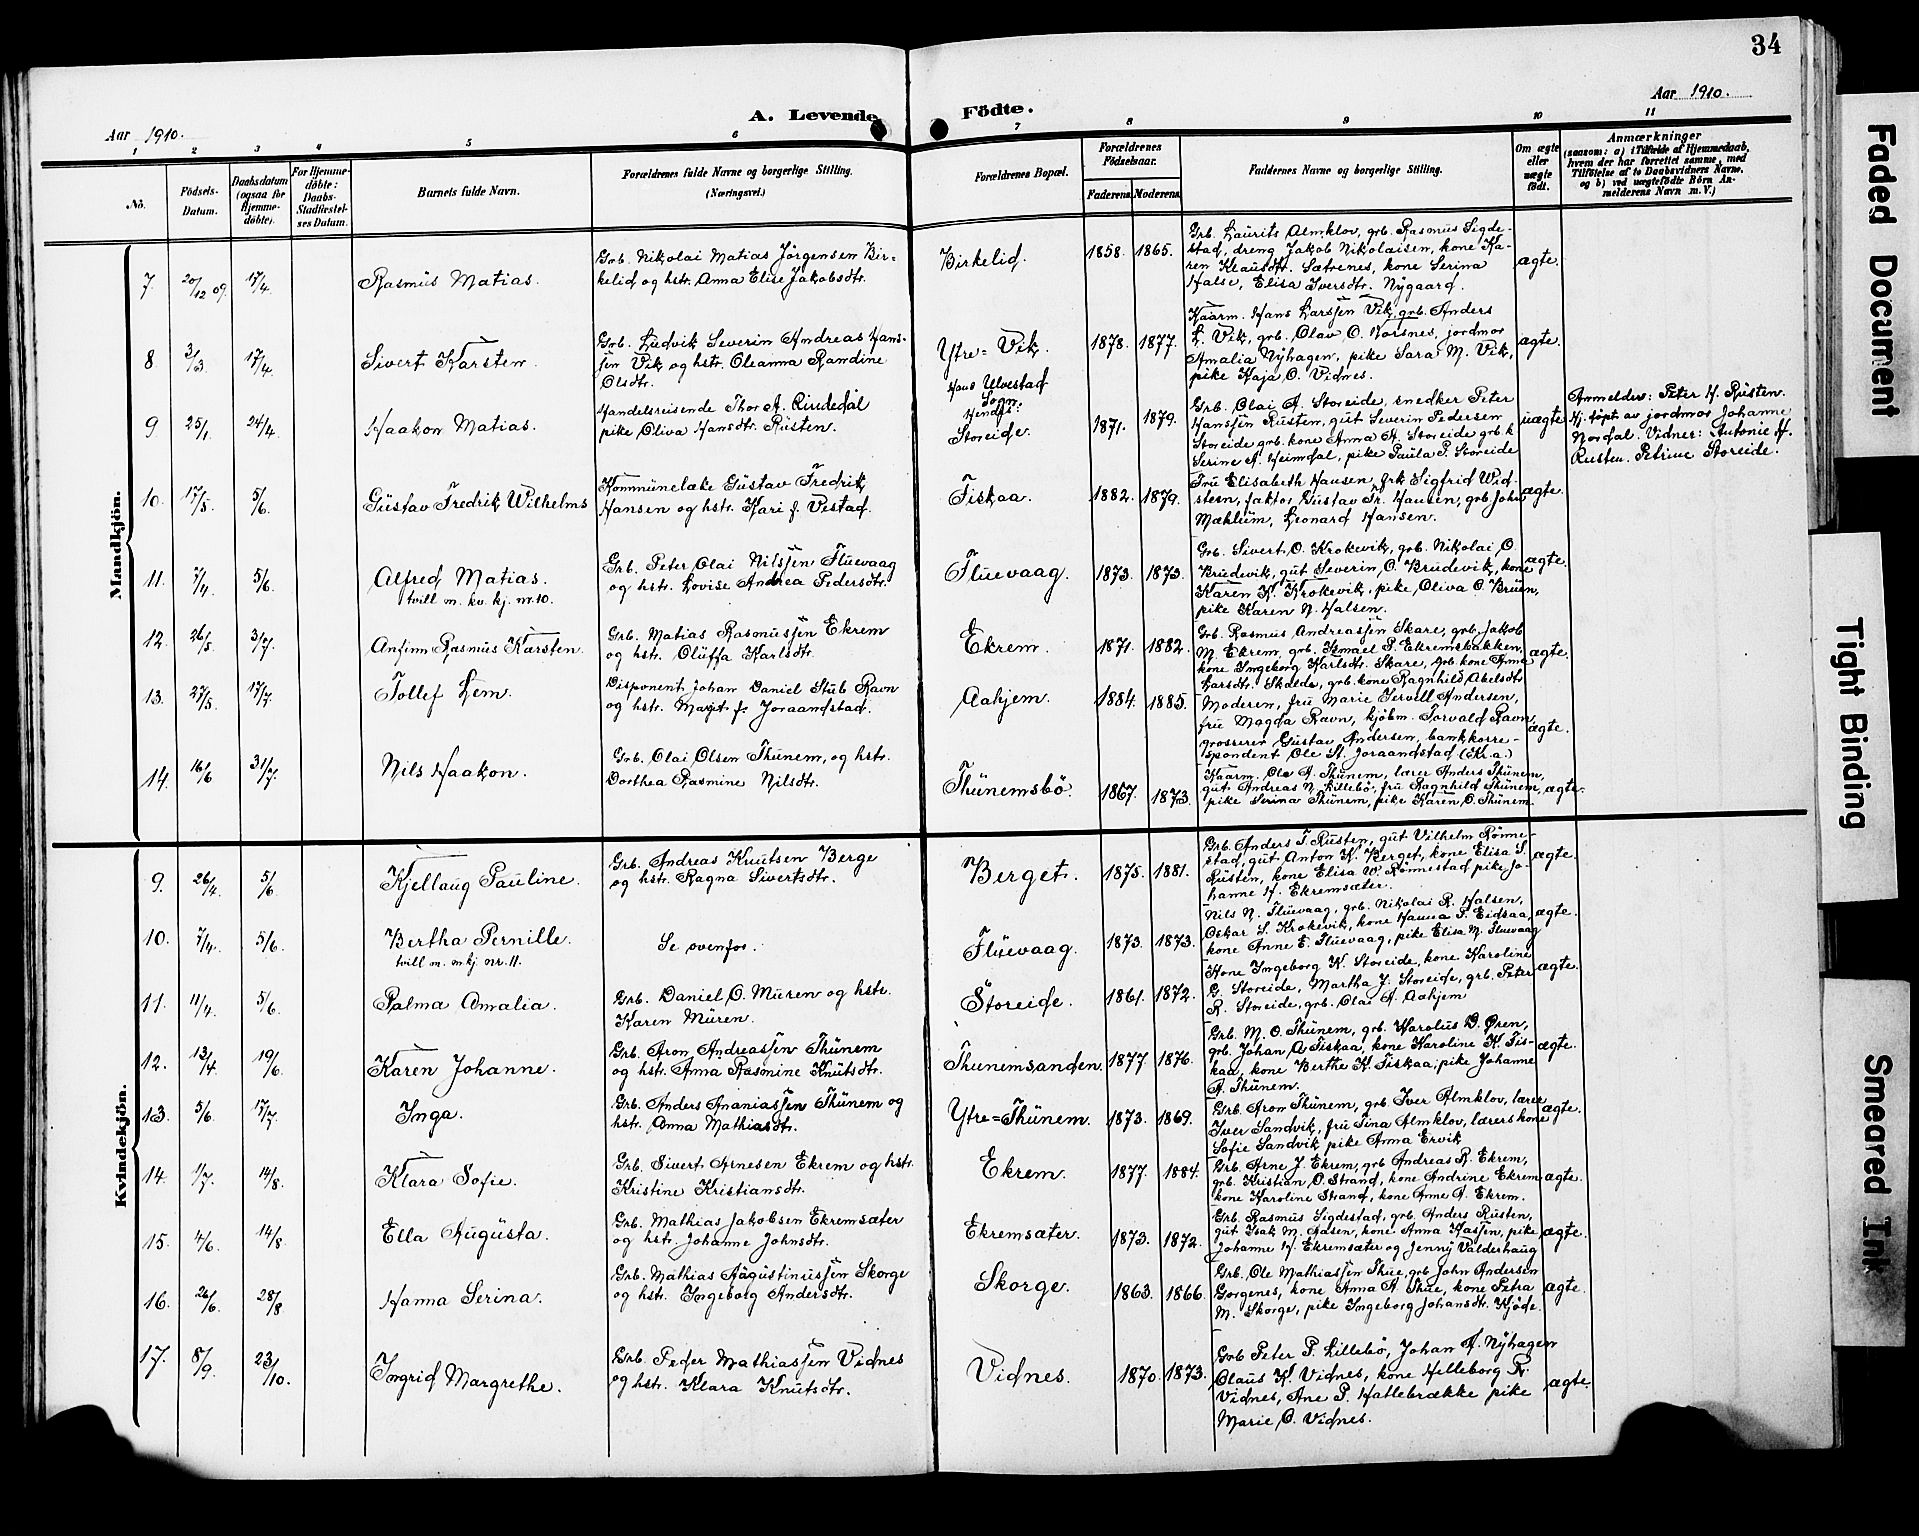 34
Aar 1910.
A. Levende
Födte.
Aar 1910.
1 2 3 4 5 6 7 8 9 10 11
No.
Födsels-Datum.
Daabsdatum (ogsaa for Hjemme-döbte).
For Hjemme-döbte: Daabs-Stadfæstel-ses Datum.
Barnets fulde Navn.
Forældrenes fulde Navne og borgerlige Stilling.
(Næringsvei.)
Forældrenes Bopæl.
Forældrenes Födselsaar.
Faderens. Moderens.
Faddernes Navne og borgerlig Stilling.
Om ægte eller uægte födt.
Anmærkninger
(saasom: a) i Tilfælde af Hjemmedaab,
hvem der har forrettet samme, med
Tilföielse af to Daabsvidners Navne,
og b) ved uægtefödte Börn An-
melderens Navn m. V.)
Mandkjön.
7. 20/12 09. 17/4 Rasmus Matias.
Grb. Nikolai Matias Jörgensen Bir-
kelid og hstr. Anna Elise Jakobsdtr.
Birkelid. 1858. 1865.
Grb. Laurits Almklov, grb. Rasmus Sigde-
stad, dreng Jakob Nikolaisen, kone Ka-
ren Klausdtr. Sætrenes, kone Serina
Halse, Elisa Iversdtr. Nygaard.
ægte.
8. 3/3. 17/4 Sivert Karsten.
Grb. Ludvik Severin Andreas Hans-
sen Vik og hstr. Oleanna Randine
Olsdtr.
Ytre=Vik. 1878. 1877.
Kaarm. Hans Larssen Vik, grb. Anders
L. Vik, grb. Olav O. Norsnes, jordmor
Amalia Nyhagen, pike Sara M. Vik,
pike Kaja O. Vidnes.
ægte.
9. 25/1. 24/4 Haakon Matias.
Handelsreisende Thor A. Rindedal
pike Oliva Hansdtr. Rusten.
Hans Ulvestad
Sogn.
Hendes:
Storeide. 1871. 1879.
Grb. Olai A. Storeide, snedker Peter
Hanssen Rusten, gut Severin Pedersen
Storeide grb. kone Anna A. Storeide grb k
Serine A. Heimdal, pike Paula P. Storeide
uægte
Anmelder: Peter H. Rusten.
Hj. döpt av jordmor Johanne
Nordal. Vidner: Antonie H.
Rusten. Petrine Storeide.
10. 17/5. 5/6. Gustav Fredrik Wilhelms
Kommunelæke Gustav Fredrik
Hansen og hstr. Kari f. Vestad.
Fiskaa. 1882. 1879.
Fru Elisabeth Hansen, frk Sigfrid Wid-
steen, faktor Gustav Fr. Hansen, grb John
Mæhlum, Leonard Hansen.
ægte.
11. 7/4. 5/6. Alfred Matias.
tvill m. kv. kj. nr. 10.
Grb. Peter Olai Nilssen Fluevaag
og hstr. Lovise Andrea Pedersdtr.
Fluevaag. 1873. 1873.
Grb. Sivert O. Krokevik, grb. Nikolai O.
Brudevik, gut Severin O. Brudevik, kone
Karen K. Krokevik, pike Oliva O. Bruen,
pike Karen N. Halsen.
ægte.
12. 26/5 3/7. Anfinn Rasmus Karsten.
Grb. Matias Rasmussen Ekrem
og hstr. Oluffa Karlsdtr.
Ekrem. 1871. 1882.
Grb. Rasmus Andreassen Skare, grb. Jakob
M. Ekrem, grb. Ismael P. Ekremsbakken,
kone Ingeborg Karlsdtr. Skare, grb kone Anna
Larsdtr. Skolde, grb. kone Ragnhild Abelsdtr
ægte.
13. 27/5. 17/7. Tollef Lem.
Disponent Johan Daniel Stub Ravn
og hstr. Margit f. Joraandstad.
Aahjem. 1884. 1885.
Moderen, fru Marie Servell Andersen,
fru Magda Ravn, kjöbm. Torvald Ravn,
grosserer Gustav Andersen, bankkorre-
spondent Ole St. Joraandstad (Kr. a.)
ægte.
14. 16/6 31/7. Nils Haakon.
Grb. Olai Olsen Thunem, og hstr.
Dorthea Rasmine Nilsdtr.
Thunemsbö. 1867. 1873.
Kaarm. Ole A. Thunem, lærer Anders Thunem,
gut Andreas N. Lillebö, fru Ragnhild Thunem,
pike Serina Thunem, pike Karen O. Thunem.
ægte.
Kvindekjön.
9. 26/4. 5/6 Kjellaug Pauline.
Grb. Andreas Knutsen Berge
og hstr. Ragna Sivertsdtr.
Berget. 1875. 1881.
Grb. Anders T. Rusten, gut Vilhelm Rönne-
stad, gut Anton K. Berget, kone Elisa S.
Rusten, kone Elisa W. Rönnestad pike Jo-
hanne H. Ekremsæter.
ægte.
10. 7/4. 5/6. Bertha Pernille.
tvill m. m. kj. nr. 11.
Se ovenfor.
Fluevaag. 1873. 1873.
Nils N. Fluevaag, grb. Nikolai R. Halsen,
Oskar S. Krokevik, kone Hanna P. Eidsaa,
kone Anne E. Fluevaag, pike Elisa M. Fluevaag
ægte.
11. 11/4. 5/6. Palma Amalia.
Grb. Daniel O. Muren og hstr.
Karen Muren.
Storeide. 1861. 1872.
Kone Ingeborg K. Storeide, kone Karoline
G. Storeide, Martha J. Storeide, grb. Peter
R. Storeide, grb. Olai A. Aahjem
ægte.
12. 13/4 19/6. Karen Johanne.
Grb. Aron Andreassen Thunem
og hstr. Anna Rasmine Knutsdtr.
Thunemsanden. 1877. 1876.
Grb. M. O. Thunem, grb. Karolus D. Øren,
grb. Johan A Fiskaa, kone Karoline K. Fis-
kaa, kone Berthe K. Fiskaa, pike Johanne
A. Thunem.
ægte.
13. 5/6. 17/7. Inga.
Grb. Anders Ananiassen Thunem og
hstr. Anna Mathiasdtr.
Ytre=Thunem. 1873. 1869.
Grb. Aron Thunem, grb. Iver Almklov, lærer
Iver Sandvik, fru Tina Almklov, lærers kone
Sofie Sandvik pike Anna Ervik
ægte.
14. 1/7. 14/8. Klara Sofie.
Grb. Sivert Arnesen Ekrem og hstr.
Kristine Kristiansdtr.
Ekrem. 1877. 1884.
Grb. Arne J. Ekrem, grb Andreas R. Ekrem,
grb. Kristian O. Strand, kone Andrine Ekrem
kone Karoline Strand, kone Anne A. Ekrem.
ægte.
15. 4/6. 14/8 Ella Augusta.
Grb. Mathias Jakobsen Ekremsæter
og hstr. Johanne Johnsdtr.
Ekremsæter. 1873. 1872.
Grb. Rasmus Sigdestad, grb. Anders Rusten,
gut Isak M. Aasen, kone Anna Hassen, pike
Johanne H. Ekremsæter og Jenny Valderhaug
ægte.
16. 26/6. 28/8 Hanna Serina.
Grb. Mathias Augustinussen Skorge
og hstr. Ingeborg Andersdtr.
Skorge. 1863. 1866.
Grb. Ole Mathiassen Thue, grb John Andersen
Gorgenes, kone Anna A. Thue, kone Petra
M. Skorge, pike Ingeborg Johansdtr. Kjöde.
ægte.
17. 8/9. 23/10. Ingrid Margrethe.
Grb. Peder Mathiassen Vidnes
og hstr. Klara Knutsdtr.
Vidnes. 1870. 1873.
Grb Peter P. Lillebö, Johan A. Nyhagen
Claus K. Vidnes, kone Helleborg Pr.
Vidnes, Ane P. Hallebrække pike
Marie O. Vidnes.
ægte.
Faded Document
Tight Binding
Smeared Ink